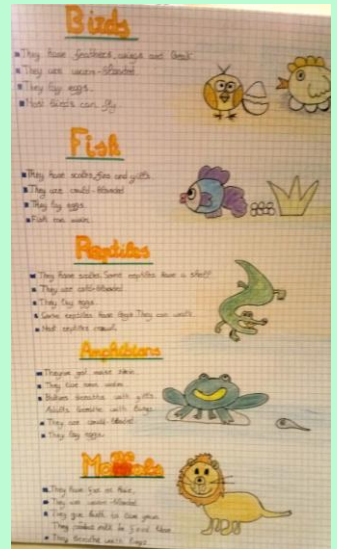 Birds
They have feathers, wings and beak
They are warm-blooded
They lay eggs.
Most birds can fly
Fish
They have scales, fins and gills.
They are could-blooded
They lay eggs.
Fish can swim.
Reptiles
They have scales. Some reptiles have a shell
They are cold-blooded
They lay eggs.
Some reptiles have legs. They can walk.
Most reptiles crawl.
Amphibians
They've got skin.
They live near water.
Babies breathe with gills.
Adults breathe with lungs.
They are could-blooded
They lay eggs.
They have fur or hair.
They are warm-blooded
They give birth to live young.
They milk to feed them
They breathe with lungs